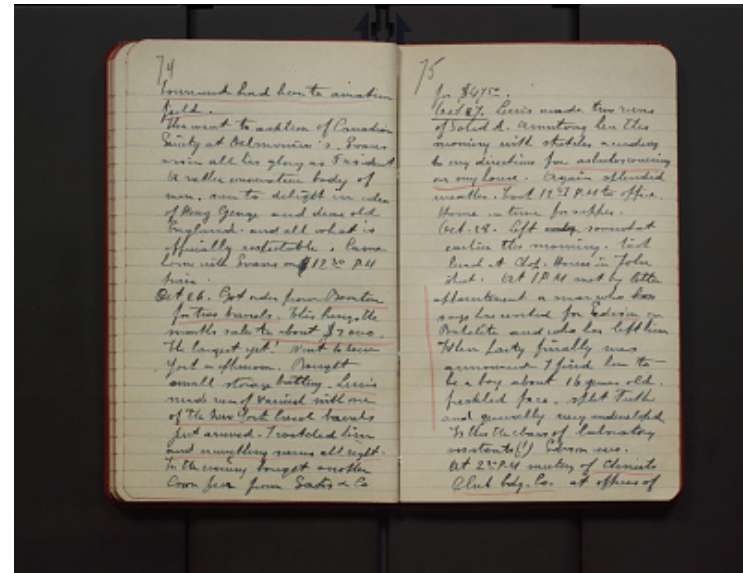 74
hound had been to aviation
field.
Then went to reception of Canadian
Society at Delmonico's. Evans
was in all his glory as President
A rather conservative body of
men, seem to delight in idea
of King George and dear old
England, and all what is
officially respectable. Came
home with Evans on 12 30 P.M
train.
Oct 26. Got order from Boonton
for two barrels. This brings the
months sale to about $7000.
The largest yet! Went to
York in afternoon. Bought
small storage battery. Lewis
made run of varnish with one
of the New York barrels
just arrived. I watched him
and everything seems all right.
In the evening bought another
Coon fur from Saks & Co
75
for $475
Oct 27. Lewis made two runs
of Solid A. Armstrong here this
morning with sketches according
to my directions for
on my house. Again splendid
weather. Took 12 P.M to office.
Home in time for supper.
Oct. 28. Left somewhat
earlier this morning. Took
lunch at Club. House in John
street. At 1 P.M met by letter
appointment a man who
says he worked for Edison on
Bakelite and who has left him
When party finally was
announced I find him to
be a boy about 16 years old.
freckled face, split teeth
and generally very undeveloped
Is this the class of laboratory
assistants(!) Edison uses.
At 2 P.M meeting of Chemists
Club bldg. Co. at offices of